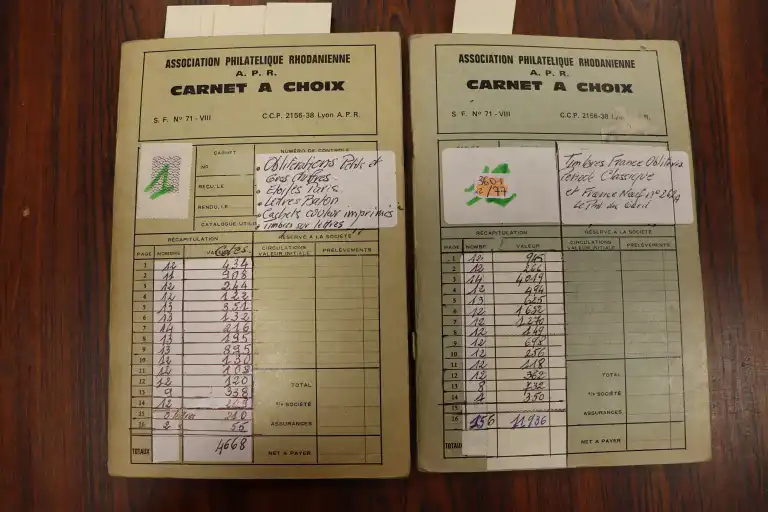 ASSOCIATION PHILATELIQUE RHODANIENNE
A. P. R.
CARNET A CHOIX
S. F. N° 71 - VIII C.C.P. 2156-38 Lyon A.P.R.
CARNET NUMÉRO DE CONTROLE
NR
REÇU, LE
RENDU, LE
CATALOGUE UTILI
1
• Oblitérations Petits et
Gros chiffres.
• Etoiles Paris
• Lettres Ballon
• Cachets couleur imprimés
• Timbres sur lettres
RÉCAPITULATION RÉSERVÉ A LA SOCIÉTÉ
PAGE NOMBRE VA Cotes CIRCULATIONS VALEUR INITIALE PRÉLÈVEMENTS
1 12 434
2 11 908
3 12 244
4 12 122
5 13 351
6 13 132
7 14 216
8 13 195
9 13 895
10 12 130
11 12 108
12 12 120 TOTAL
13 9 338
14 12 % SOCIÉTÉ
15 210 ASSURANCES
16 2 55
TOTAUX 4668 NET A PAYER
ASSOCIATION PHILATELIQUE RHODANIENNE
A. P. R.
CARNET A CHOIX
S. F. N° 71 - VIII C.C.P. 2156-38 Lyon A.P.R.
3601
/77
Timbres France Oblitérés
période Classique
et France Neuf n° 262A
Le Pont du Gard
RÉCAPITULATION RÉSERVÉ A LA SOCIÉTÉ
PAGE NOMBRE VALEUR CIRCULATIONS VALEUR INITIALE PRÉLÈVEMENTS
1 12 945
2 12 266
3 14 4019
4 12 494
5 13 625
6 12 1652
7 12 1270
8 12 149
9 12 698
10 12 256
11 12 118
12 12 362 TOTAL
13 8 232
14 4 350 % SOCIÉTÉ
15 ASSURANCES
16 156 11936
TOTAUX NET A PAYER